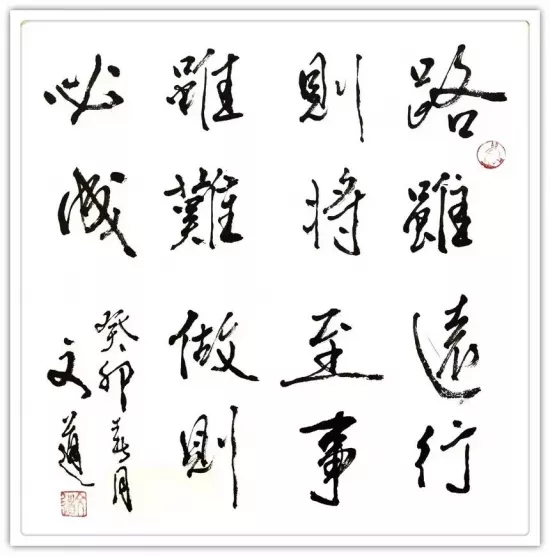 路雖遠行
則将至事
雖難做則
必成
癸卯 月
文